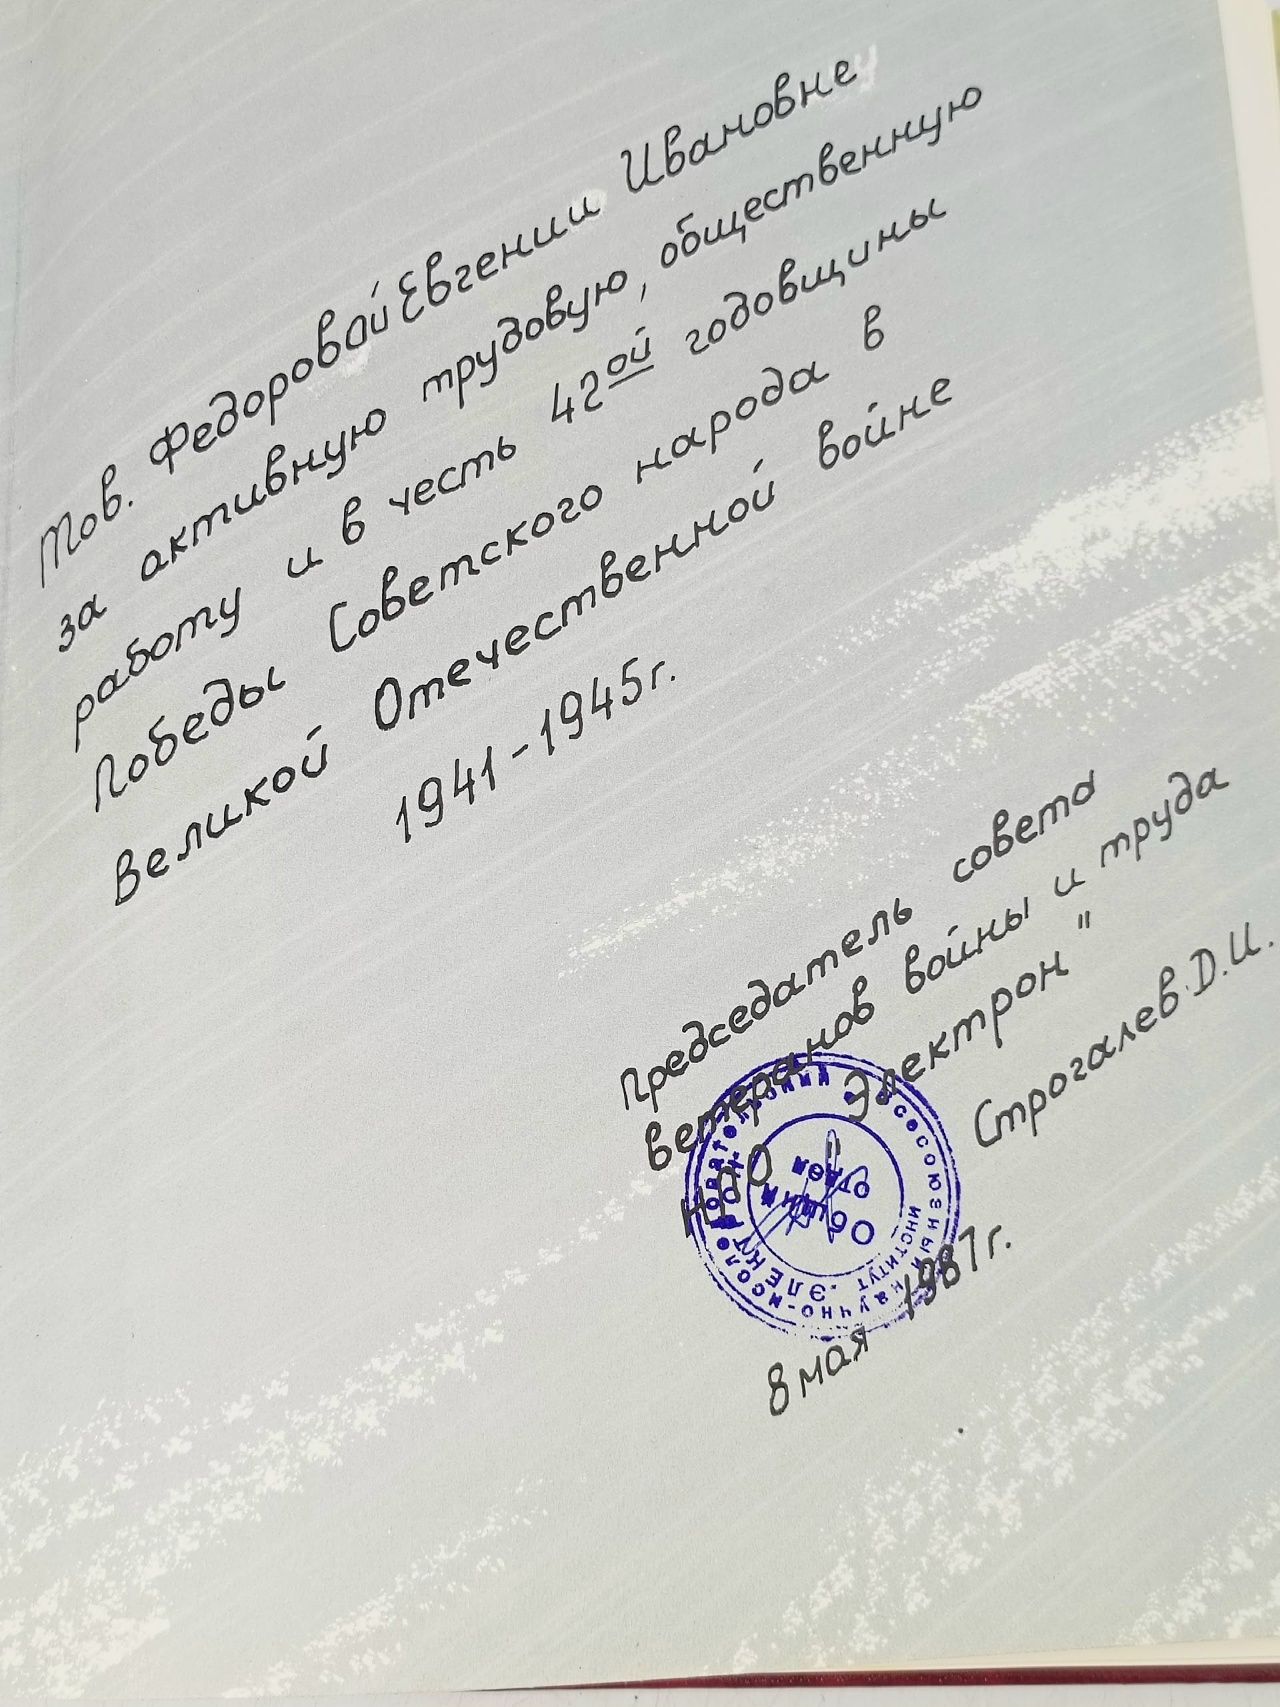 Тов. Федоровой Евгении Ивановне
за активную трудовую, общественную
работу и в честь 42ой годовщины
Победы Советского народа в
Великой Отечественной войне
1941-1945г.
Председатель совета
ветеранов войны и труда
НПО "Электрон"
Строгалев Д.И.
Всесоюзный научно-исследовательский
институт
Общий
отдел
8 мая 1987г.